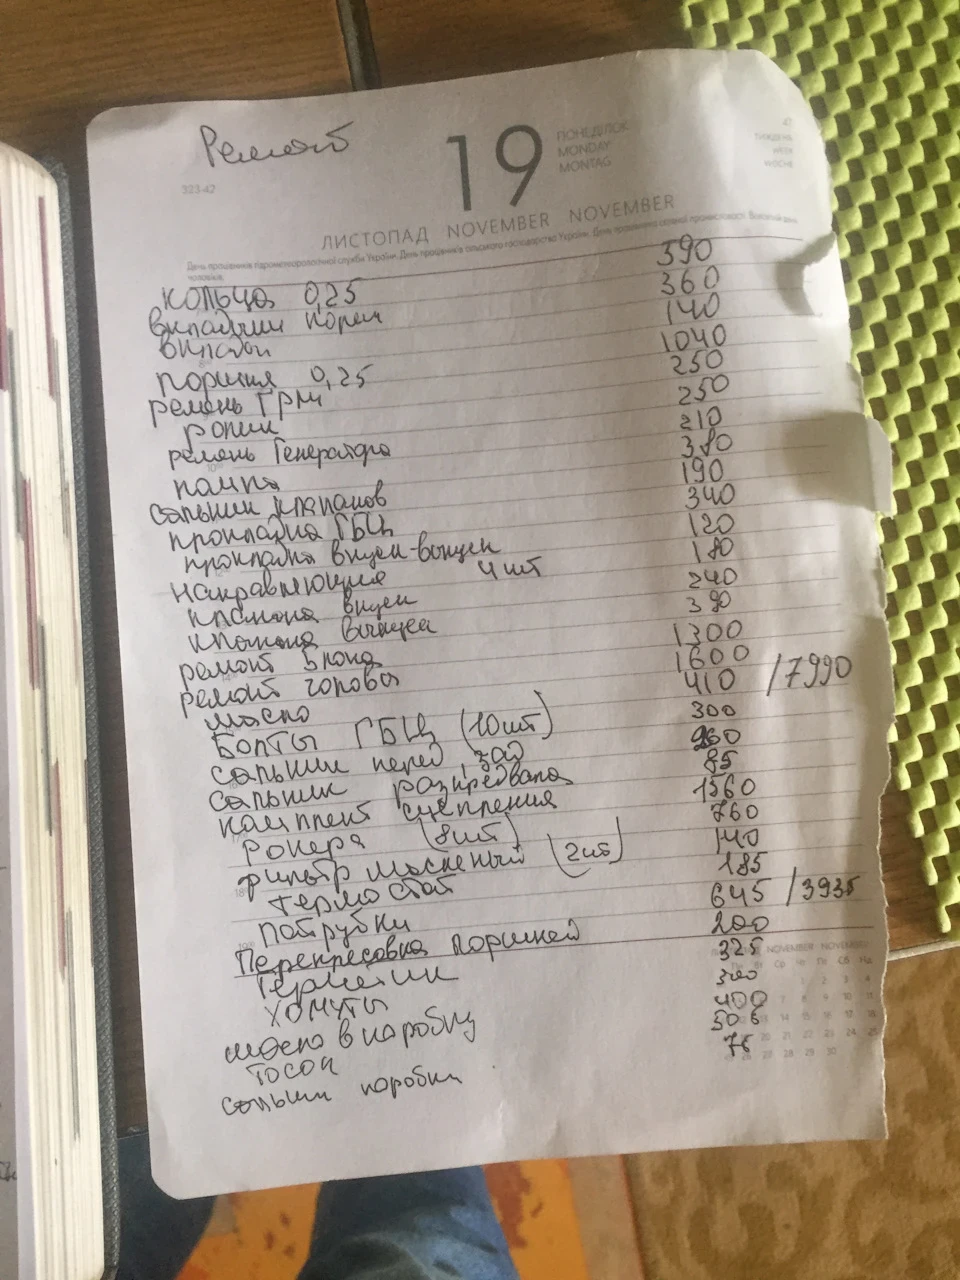 Ремонт
19
ПОНЕДІЛОК
MONDAY
MONTAG
47
ТИЖДЕНЬ
WEEK
WOCHE
323-42
ЛИСТОПАД NOVEMBER NOVEMBER
День працівників гідрометеорологічної служби України. День працівників сільського господарства України.
кольца 0,25 390
вкладыши корен 360
вклады 140
поршня 0,25 1040
ремень ГРМ 250
ролик 250
ремень Генератора 210
помпа 380
сальники клапанов 190
прокладка ГБЦ 340
прокладка впуск-выпуск 120
направляющие 4шт 180
клапана впуск 240
клапана выпуск 390
ремонт блока 1300
ремонт головы 1600
масло 410 /7990
Болты ГБЦ (10шт) 300
сальник перед, зад
сальник распредвала 85
комплект сцепления 1560
рокера (8шт) 760
фильтр масленый (2шт) 140
термостат 185
патрубки 645 /3935
Перепресовка поршней 200
Герметик 325
хомуты
масло в коробку 400
тосол
сальник коробки
NOVEMBER NOVEMBER